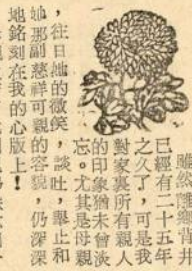 已經有二十五年
之久了，可是我
對家裏所有親人
的印象猶未曾淡
忘。尤其是母親
，往日她的微笑，談吐，舉止和
她那副慈祥可親的容貌，仍深深
地銘刻在我的心版上！